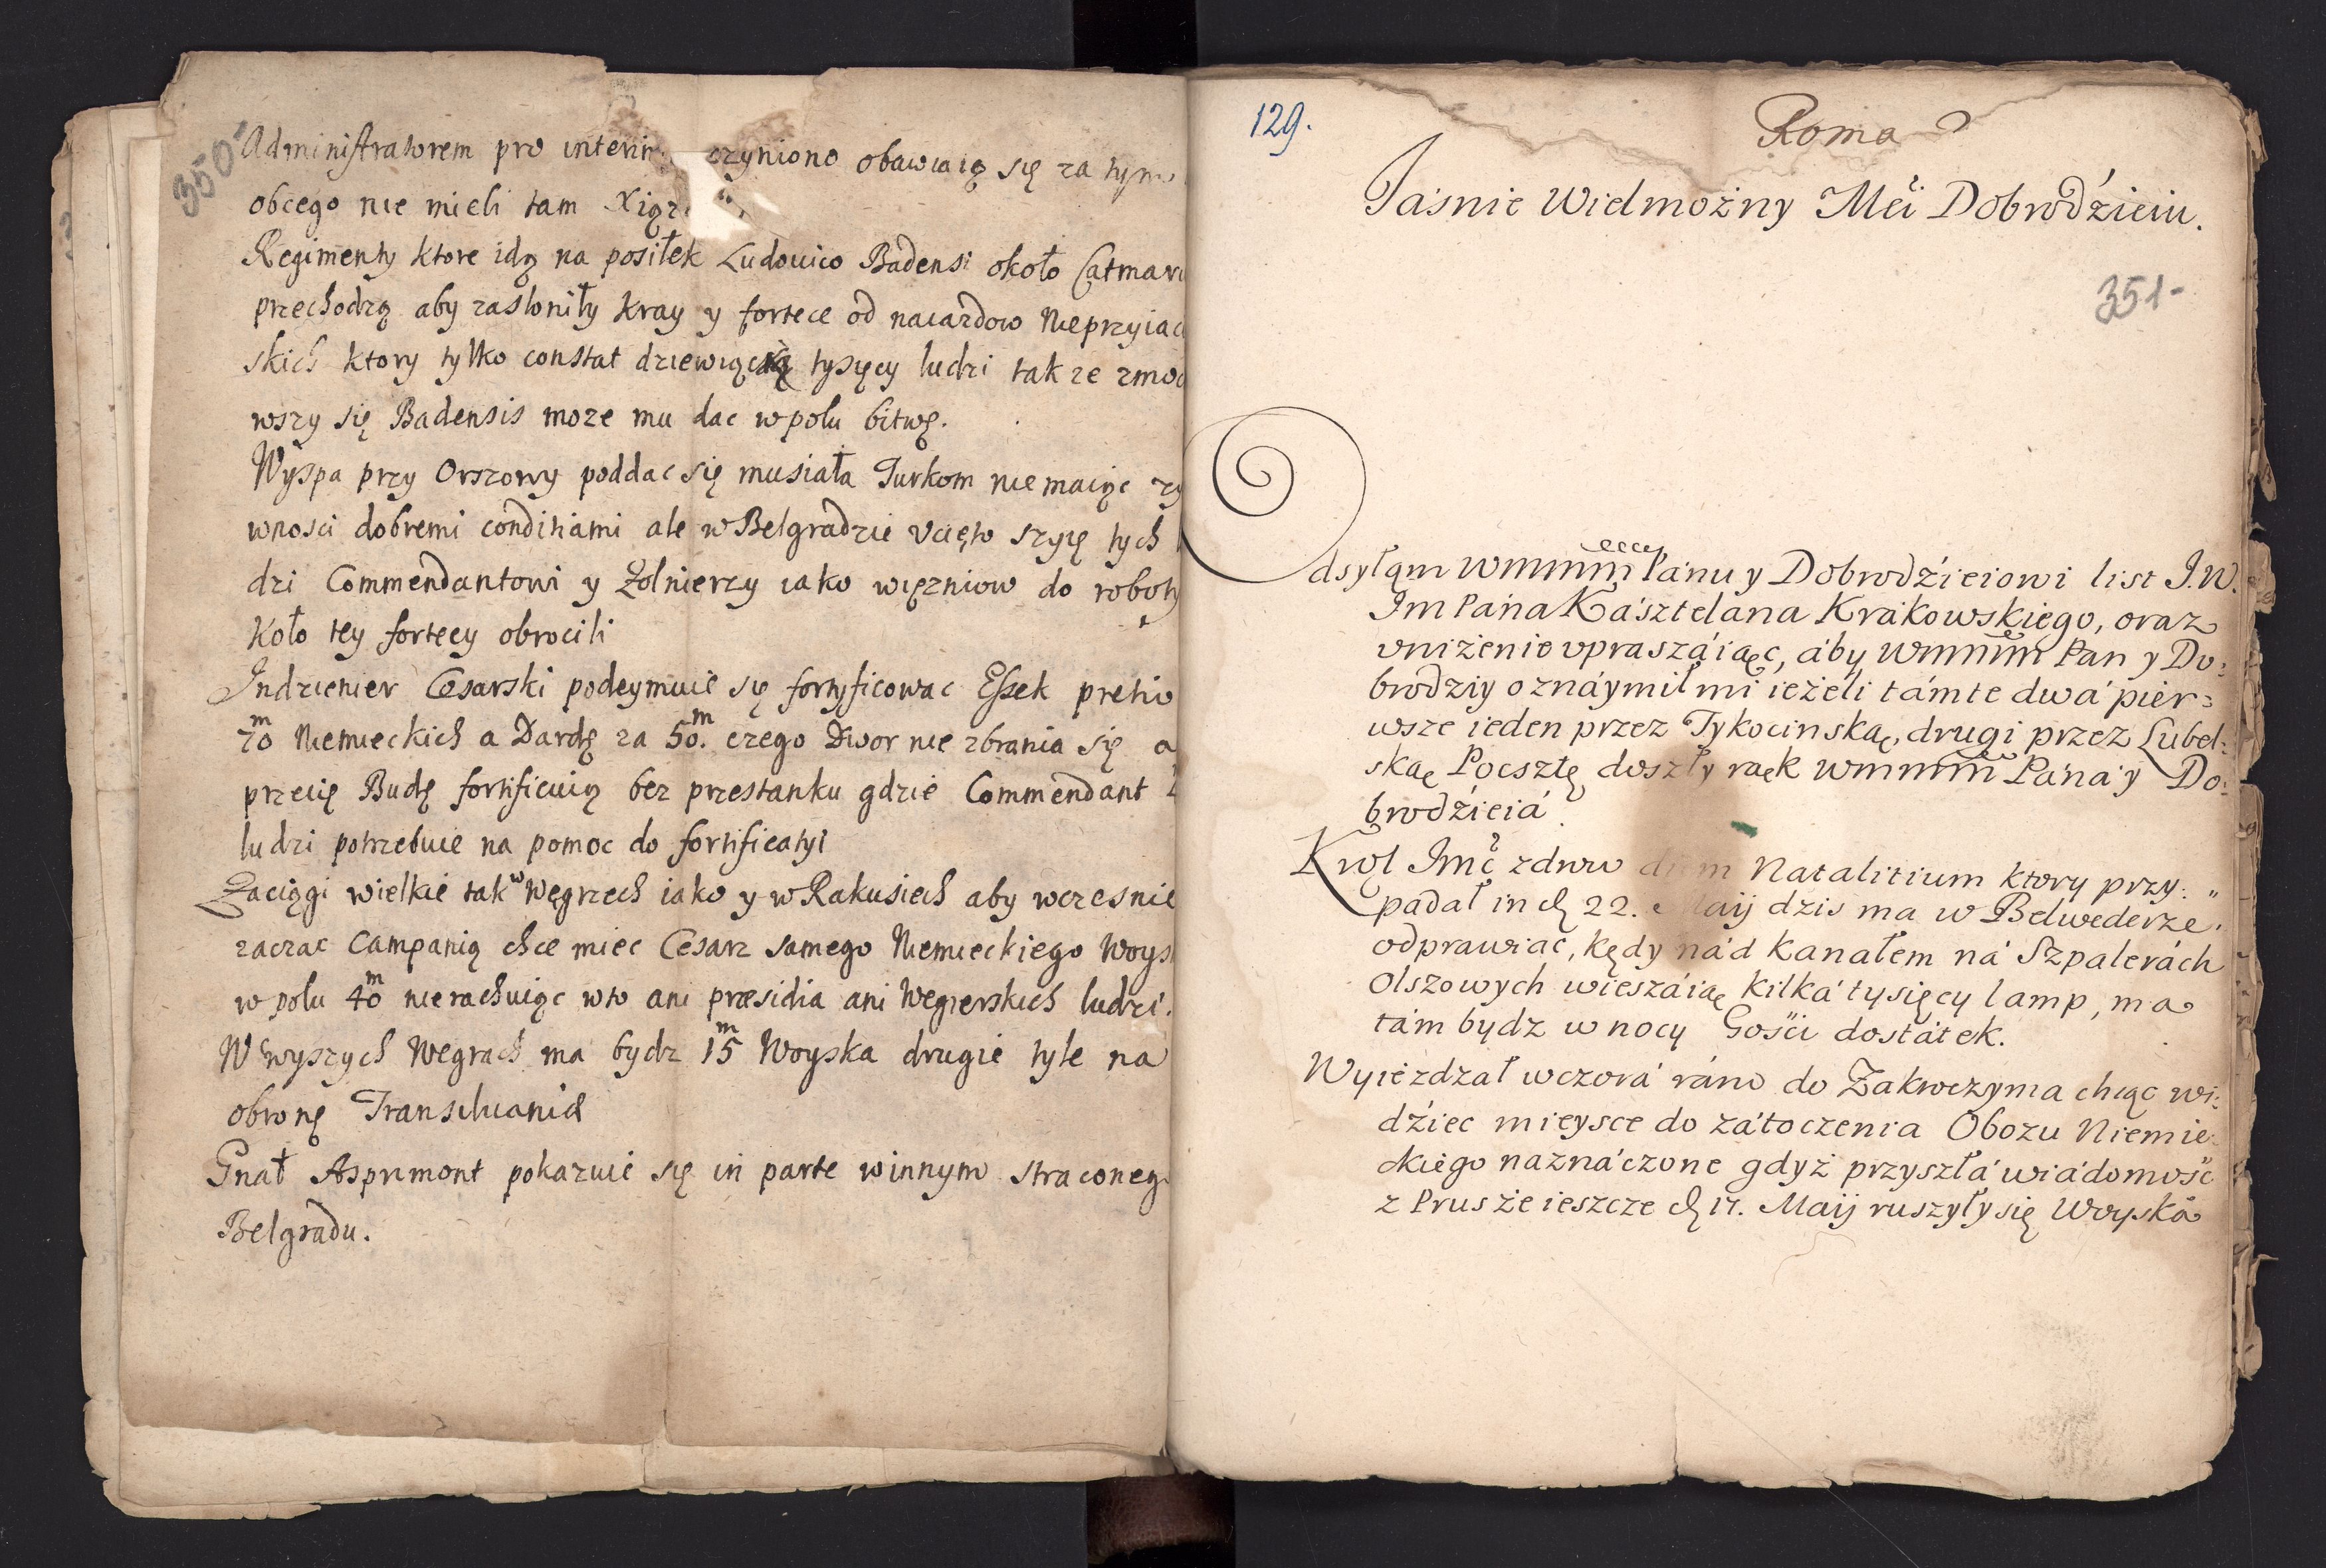 350
Administratorem pro interim czyniono obawiaią się za tym
obcego nie mieli tam Xiąz
Regimenty ktore idą na posiłek Ludovico Badensi około
przechodzą aby zasłoniły kray y fortece od naiazdow Nieprzyiac
skich ktory tylko constat dziewiącią tysięcy ludzi tak ze zmoc
wszy się Badensis moze mu dac w polu bitwę.
Wyspa przy Orszowy poddac się musiała Turkom nie maiąc zy
wnosci dobremi conditiami ale w Belgradzie ucięto szyię tych
dzi Commendantowi y Zolnierzy iako więzniow do roboty
Koło tey fortecy obrocili
Indzienier Cesarski podeymuie się fortyficowac Essek pretio
70 m Niemieckich a Dardę za 50. m czego Dwor nie zbrania się a
przecię Budę fortificuią bez przestanku gdzie Commendant
ludzi potrzebuie na pomoc do fortificatyi
Zaciągi wielkie tak w Węgrzech iako y w Rakusiech aby wczesnie
zaczac Campanią chce miec Cesarz samego Niemieckiego Woys
w polu 40 m nierachuiąc w to ani præsidia ani Wegierskich ludzi.
W wyszych Wegrach ma bydz 15 m Woyska drugie tyle na
obronę Transilvaniæ
Gnał Asprimont pokazuie się in parte winnym straconeg
Belgradu.
129.
Roma
Jasnie Wielmożny Mći Dobrodźieiu.
351-
Odsyłam Wmmmm Panu y Dobrodźieiowi list J.W.
Jm Pána Kásztelana Krakowskiego, oraz
uniżenie upraszáiąc, áby Wmmmm Pan y Do:
brodziy oznáymił mi ieżeli támte dwá pier:
wsze ieden przez Tykocinską, drugi przez Lubel:
ską Pocsztę doszły rąk Wmmmm Páná y Do:
brodźieiá.
Krol Jmć zdrow diem Natalitium ktory przy:
padał in d. 22. Maij dzis ma w Belwederze
odprawiać, kędy nád Kanałem ná Szpalerách
Olszowych wieszáią kilká tysięcy lamp, ma
tám bydz w nocy Gośći dostátek.
Wyieżdzał wczorá ráno do Zakroczyma chcąc wi:
dźiec mieysce do zátoczenia Obozu Niemie:
ckiego naznáczone gdyż przyszłá wiádomość
z Prus że ieszcze d. 17. Maij ruszyły się Woyská